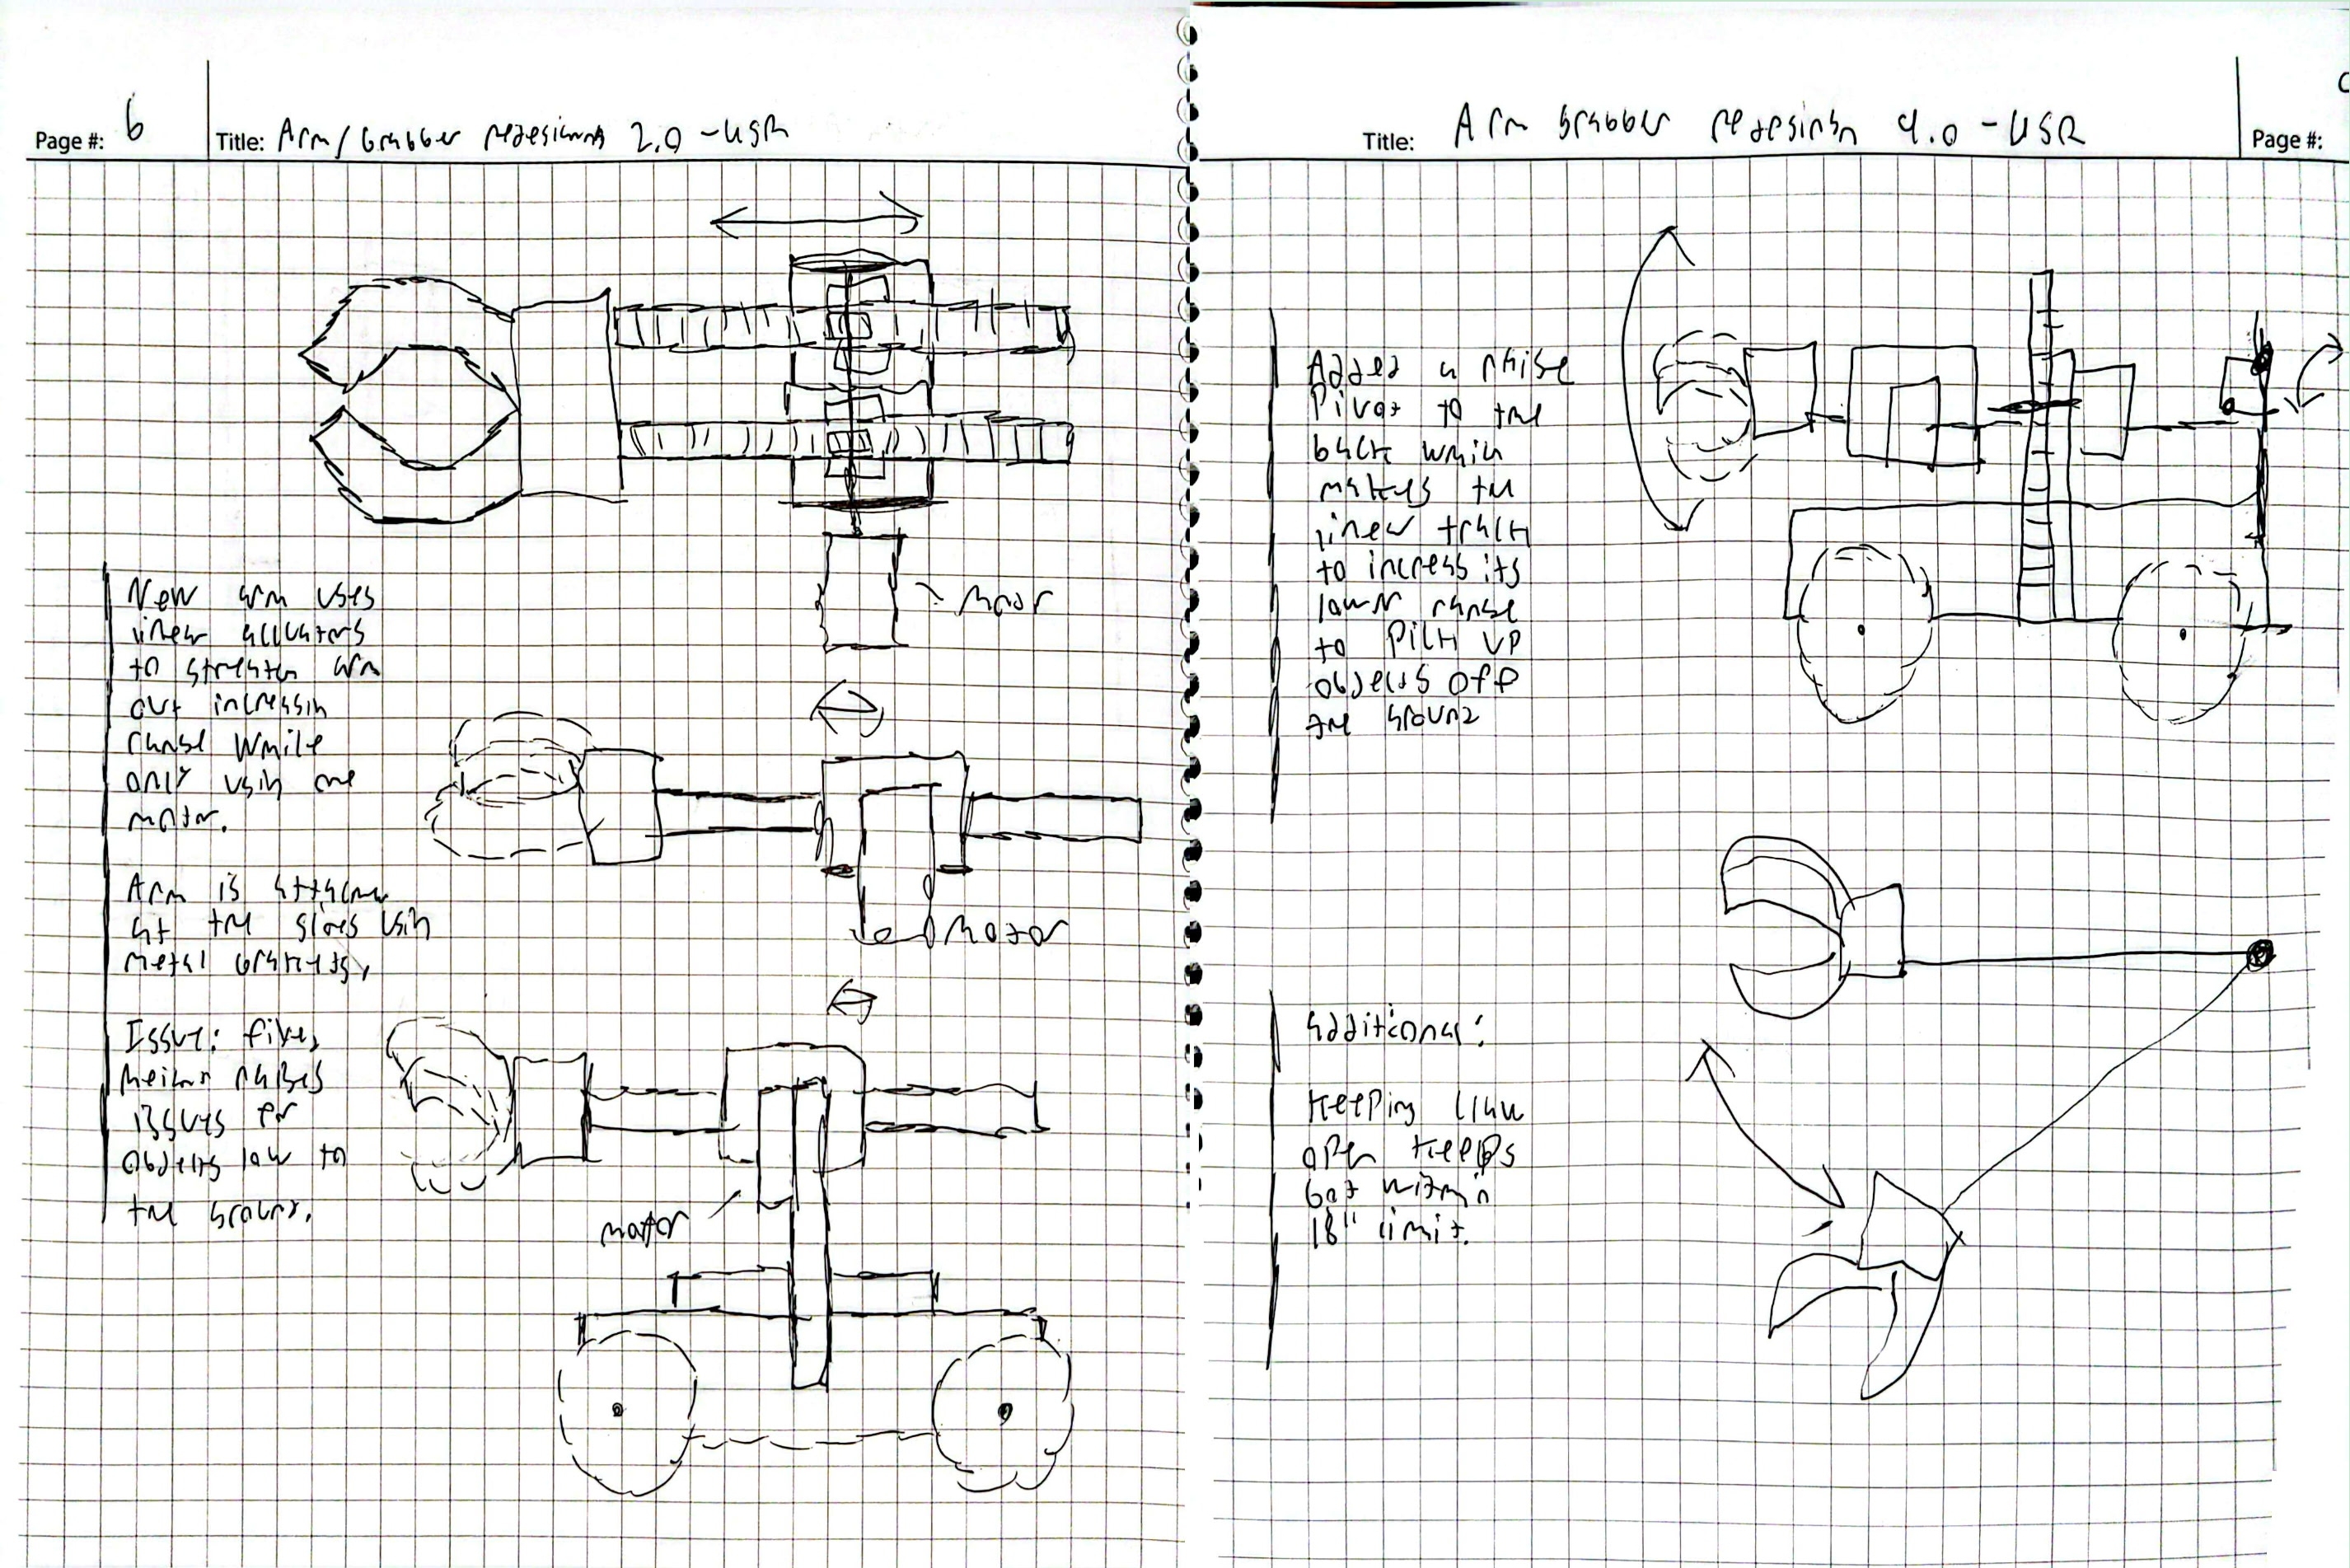 Page #: 6
Title: Arm/Grabber redesigns 2.0 - USR
New arm uses
linear actuators
to streaten arm
out increasin
range while
only usin one
motor.
Arm is attache
at the sides usin
metal brackets.
Issue: fixed
heighr raises
issues for
objects low to
the ground.
motor
motor
motor
Title: Arm Grabber redesign 4.0 - USR
Page #:
Added a raise
Pivot to the
back which
makes the
linear track
to incress its
lower range
to Pick up
objects off
the ground
Additional:
Keeping claw
open keeps
bot within
18" limit.